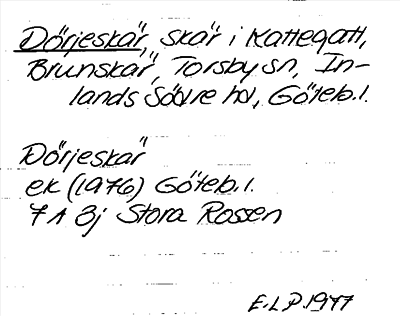 Dörjeskär, skär i Kattegatt,
Brunskär, Torsby sn, In-
lands Södre hd, Göteb. l.
Dörjeskär
ek (1976) Göteb. l.
7 A 8j Stora Rossen
E.L.P. 1977